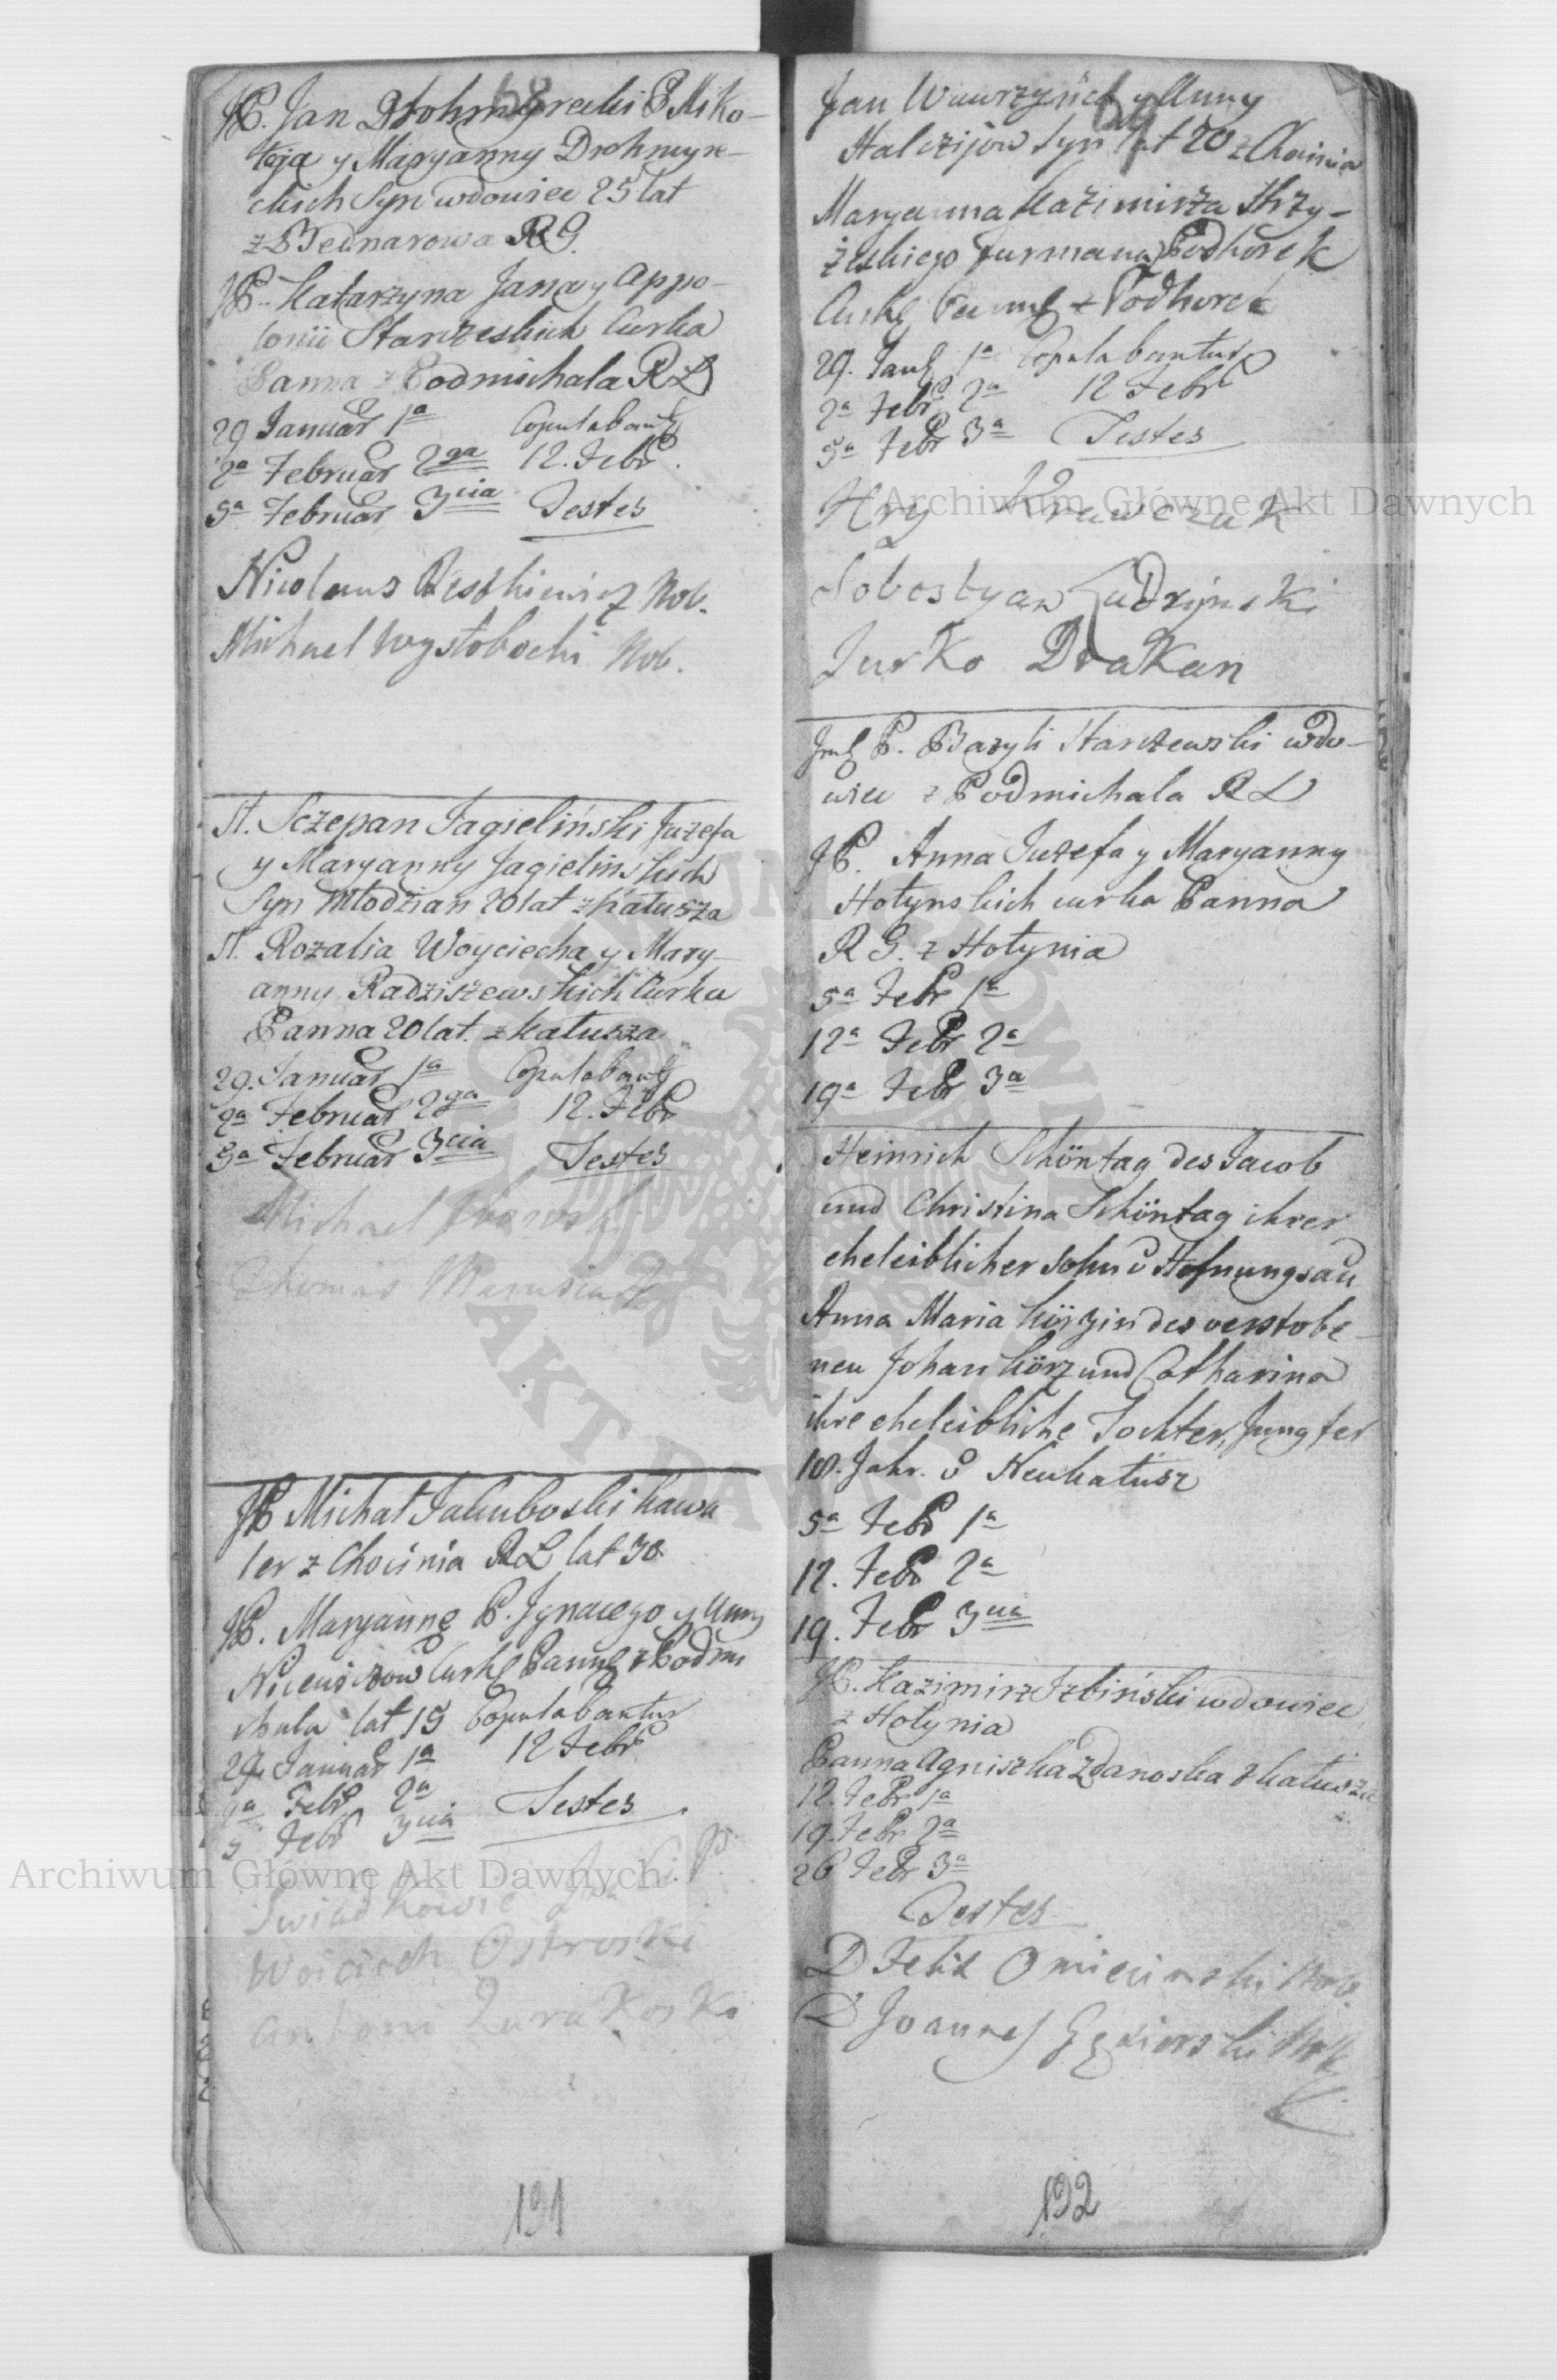 68
JP. Jan Drohmyrecki P Miko-
łaja y Maryanny Drohmyre-
ckich Syn wdowiec 25 lat
z Bednarowa RG.
JP. Katarzyna Jana y Appo-
lonii Starzeskich Curka
Panna z Podmichala RL
29 Januar 1a Copulabantur
2a Februar 2ga 12. Febr.
5a Februar 3cia Testes
Nicolaus Nob.
Michael Wysłobocki Nob.
St. Sczepan Jagieliński Juzefa
y Maryanny Jagielinskich
Syn Młodzian 20 lat z Kałusza
St. Rozalia Woyciecha y Mary-
anny Radziszewskich Curka
Panna 20 lat. z Kałusza
29. Januar 1a Copulabant
2a Februar 2ga 12. Febr
5a Februar 3cia Testes
Michael
Thomas
JP Michał Jakuboski Kawa
ler z Chocinia RL lat 30
JP. Maryannę P. Jgnacego y Anny
Curkę Pannę z Podmi
chala lat 19 Copulabantur
29. Januar 1a 12 Febr
2a Febr 2a Testes
5 Febr 3cia
Swiadkowie
Woiciech Ostroski
Antoni Zurakoski
191
Jan Wawrzynca y Anny
Halczijow Syn lat 20 z Chocinia
Maryanna Kazimirza Skrzy-
żeskiego furmana z Podhorek
Curkę Pannę z Podhorek
29. Jan 1a Copulabantur
2a Febr 2a 12 Febr
5a Febr 3a Testes
Hry Krawczuk
Sobestyan
Jurko Drakan
Jmć P. Bazyli Starczewski wdo-
wiec z Podmichala RL
JP. Anna Juzefa y Maryanny
Hołynskich curka Panna
RG. z Hołynia
5a Febr 1a
12a Febr 2a
19a Febr 3a
Heinrich Schöntag des Jacob
und Christina Schöntag ihrer
eheleiblicher sohn v Hofnungsau
Anna Maria Körzin des verstobe-
nen Johan Körz und Catharina
ihre eheleibliche Tochter, Jungfer
18. Jahr. v Neukałusz
5a Febr 1a
12. Febr 2a
19. Febr 3cia
JP. Kazimirz Jzbiński wdowiec
z Hołynia
Panna Agniszka Zdanoska z Kałusza
12. Febr 1a
19. Febr 2a
26 Febr 3a
Testes
D Felix Omiecinski Nob.
D Joannes Nob
192
Archiwum Główne Akt Dawnych
Archiwum Główne Akt Dawnych